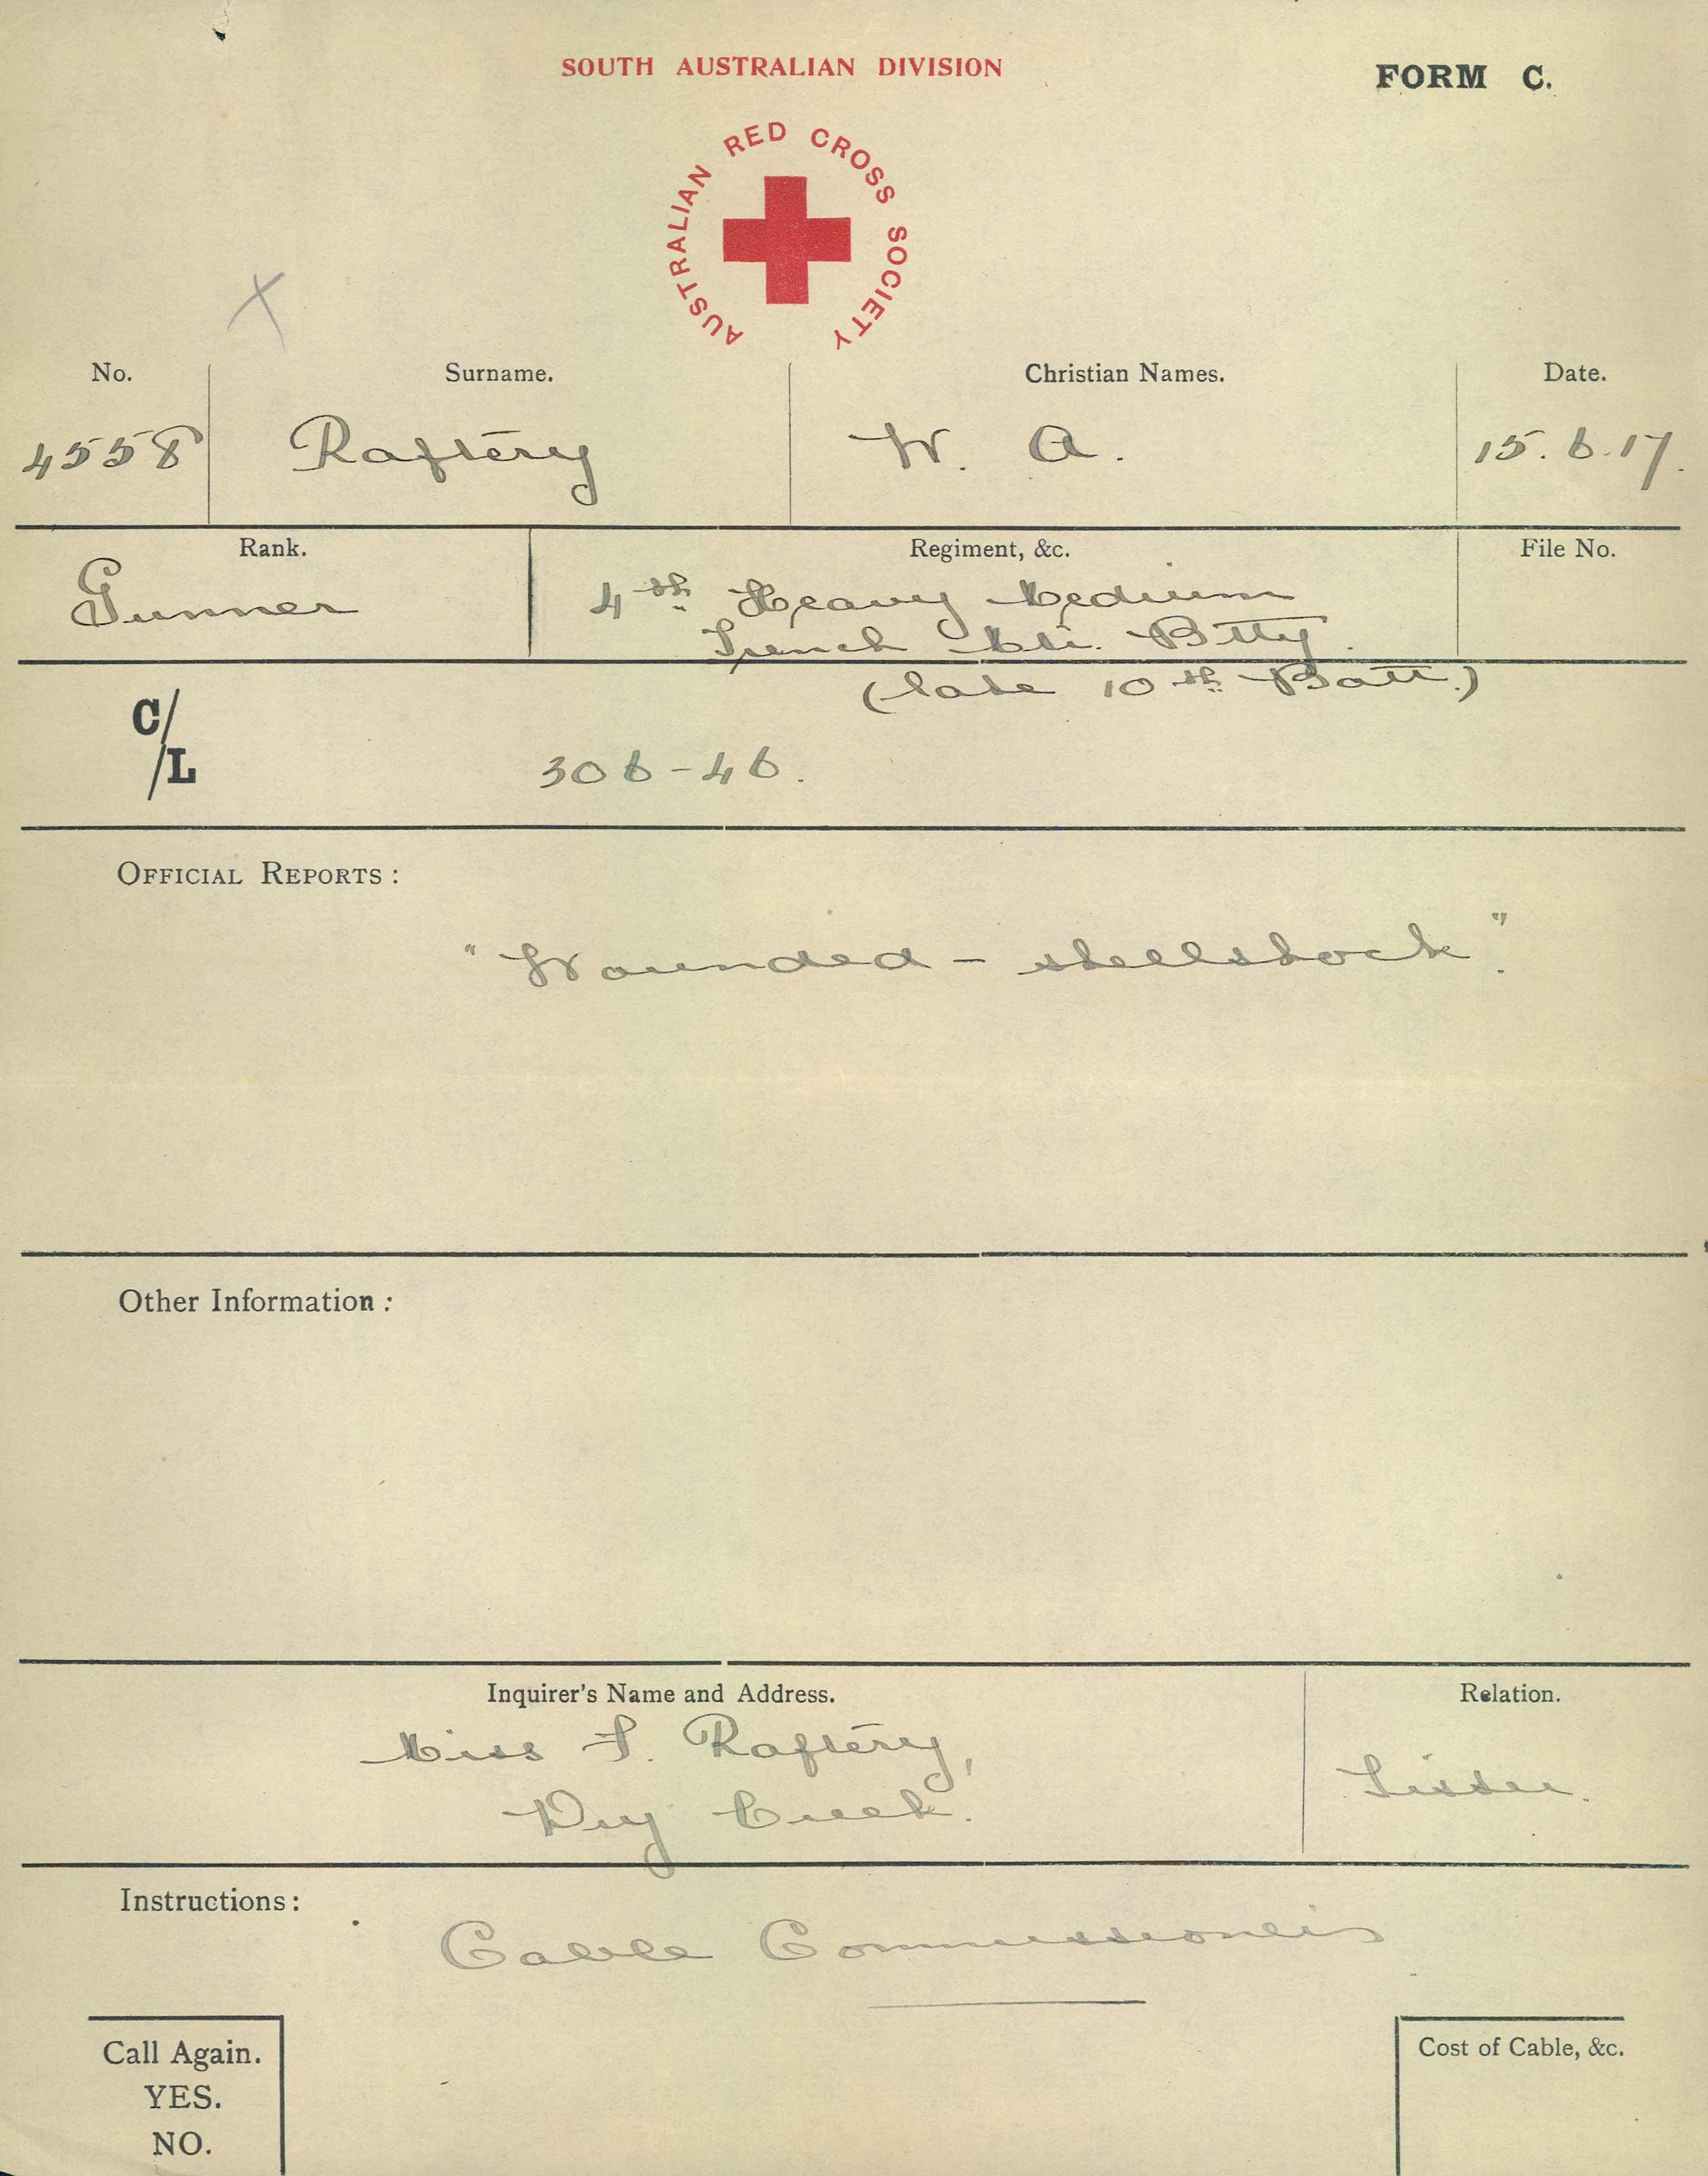 SOUTH AUSTRALIAN DIVISION
FORM C.
AUSTRALIAN RED CROSS SOCIETY
X
No. Surname. Christian Names. Date.
4558 Raftery W. A. 15.6.17.
Rank. Regiment, &c. File No.
Gunner 4th Heavy Medium
Trench Mtr. Btty.
(late 10th Batt.)
C/
/L
306-46.
OFFICIAL REPORTS:
"Wounded - shellshock".
Other Information:
Inquirer's Name and Address. Relation.
Miss F. Raftery,
Sister.
Dry Creek.
Instructions:
Cable Commissioners
Call Again.
YES.
NO.
Cost of Cable, &c.